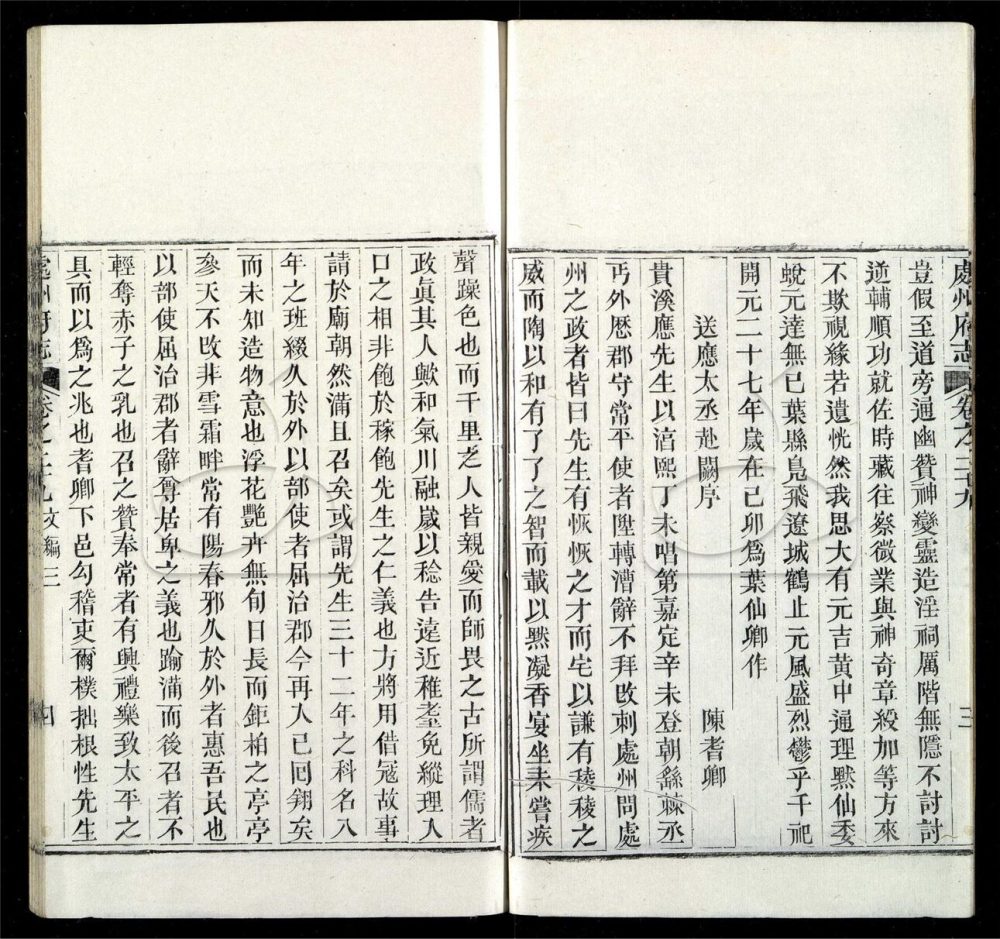 處州府志 卷之二十九 三
豈假至道旁通幽贊神變靈造淫祠厲階無隱不討討
逆輔順功就佐時藏往察微業與神奇章綬加等方來
不欺視緣若遺恍然我思大有元吉黄中通理黙仙委
蛻元達無已葉縣鳧飛遼城鶴止元風盛烈鬱乎千祀
開元二十七年歲在己卯爲葉仙卿作
送應太丞赴闕序 陳耆卿
貴溪應先生以湻熙丁未唱第嘉定辛未登朝繇棘丞
丐外歷郡守常平使者陞轉漕辭不拜改刺處州問處
州之政者皆曰先生有恢恢之才而宅以謙有稜稜之
威而陶以和有了了之智而載以黙凝香宴坐未嘗疾
聲躁色也而千里之人皆親愛而師畏之古所謂儒者
政眞其人歟和氣川融嵗以稔告遠近稚耋免縱理入
口之相非飽於稼飽先生之仁義也方將用借冦故事
請於廟朝然滿且召矣或謂先生三十二年之科名八
年之班綴久於外以部使者屈治郡今再入已回翔矣
而未知造物意也浮花豔卉無旬日長而鉅柏之亭亭
參天不改非雪霜畔常有陽春邪久於外者惠吾民也
以部使屈治郡者辭尊居卑之義也踰滿而後召者不
輕奪赤子之乳也召之贊奉常者有興禮樂致太平之
具而以爲之兆也者卿下邑勾稽吏爾樸拙根性先生
處州府志 卷之二十九 文編三 四